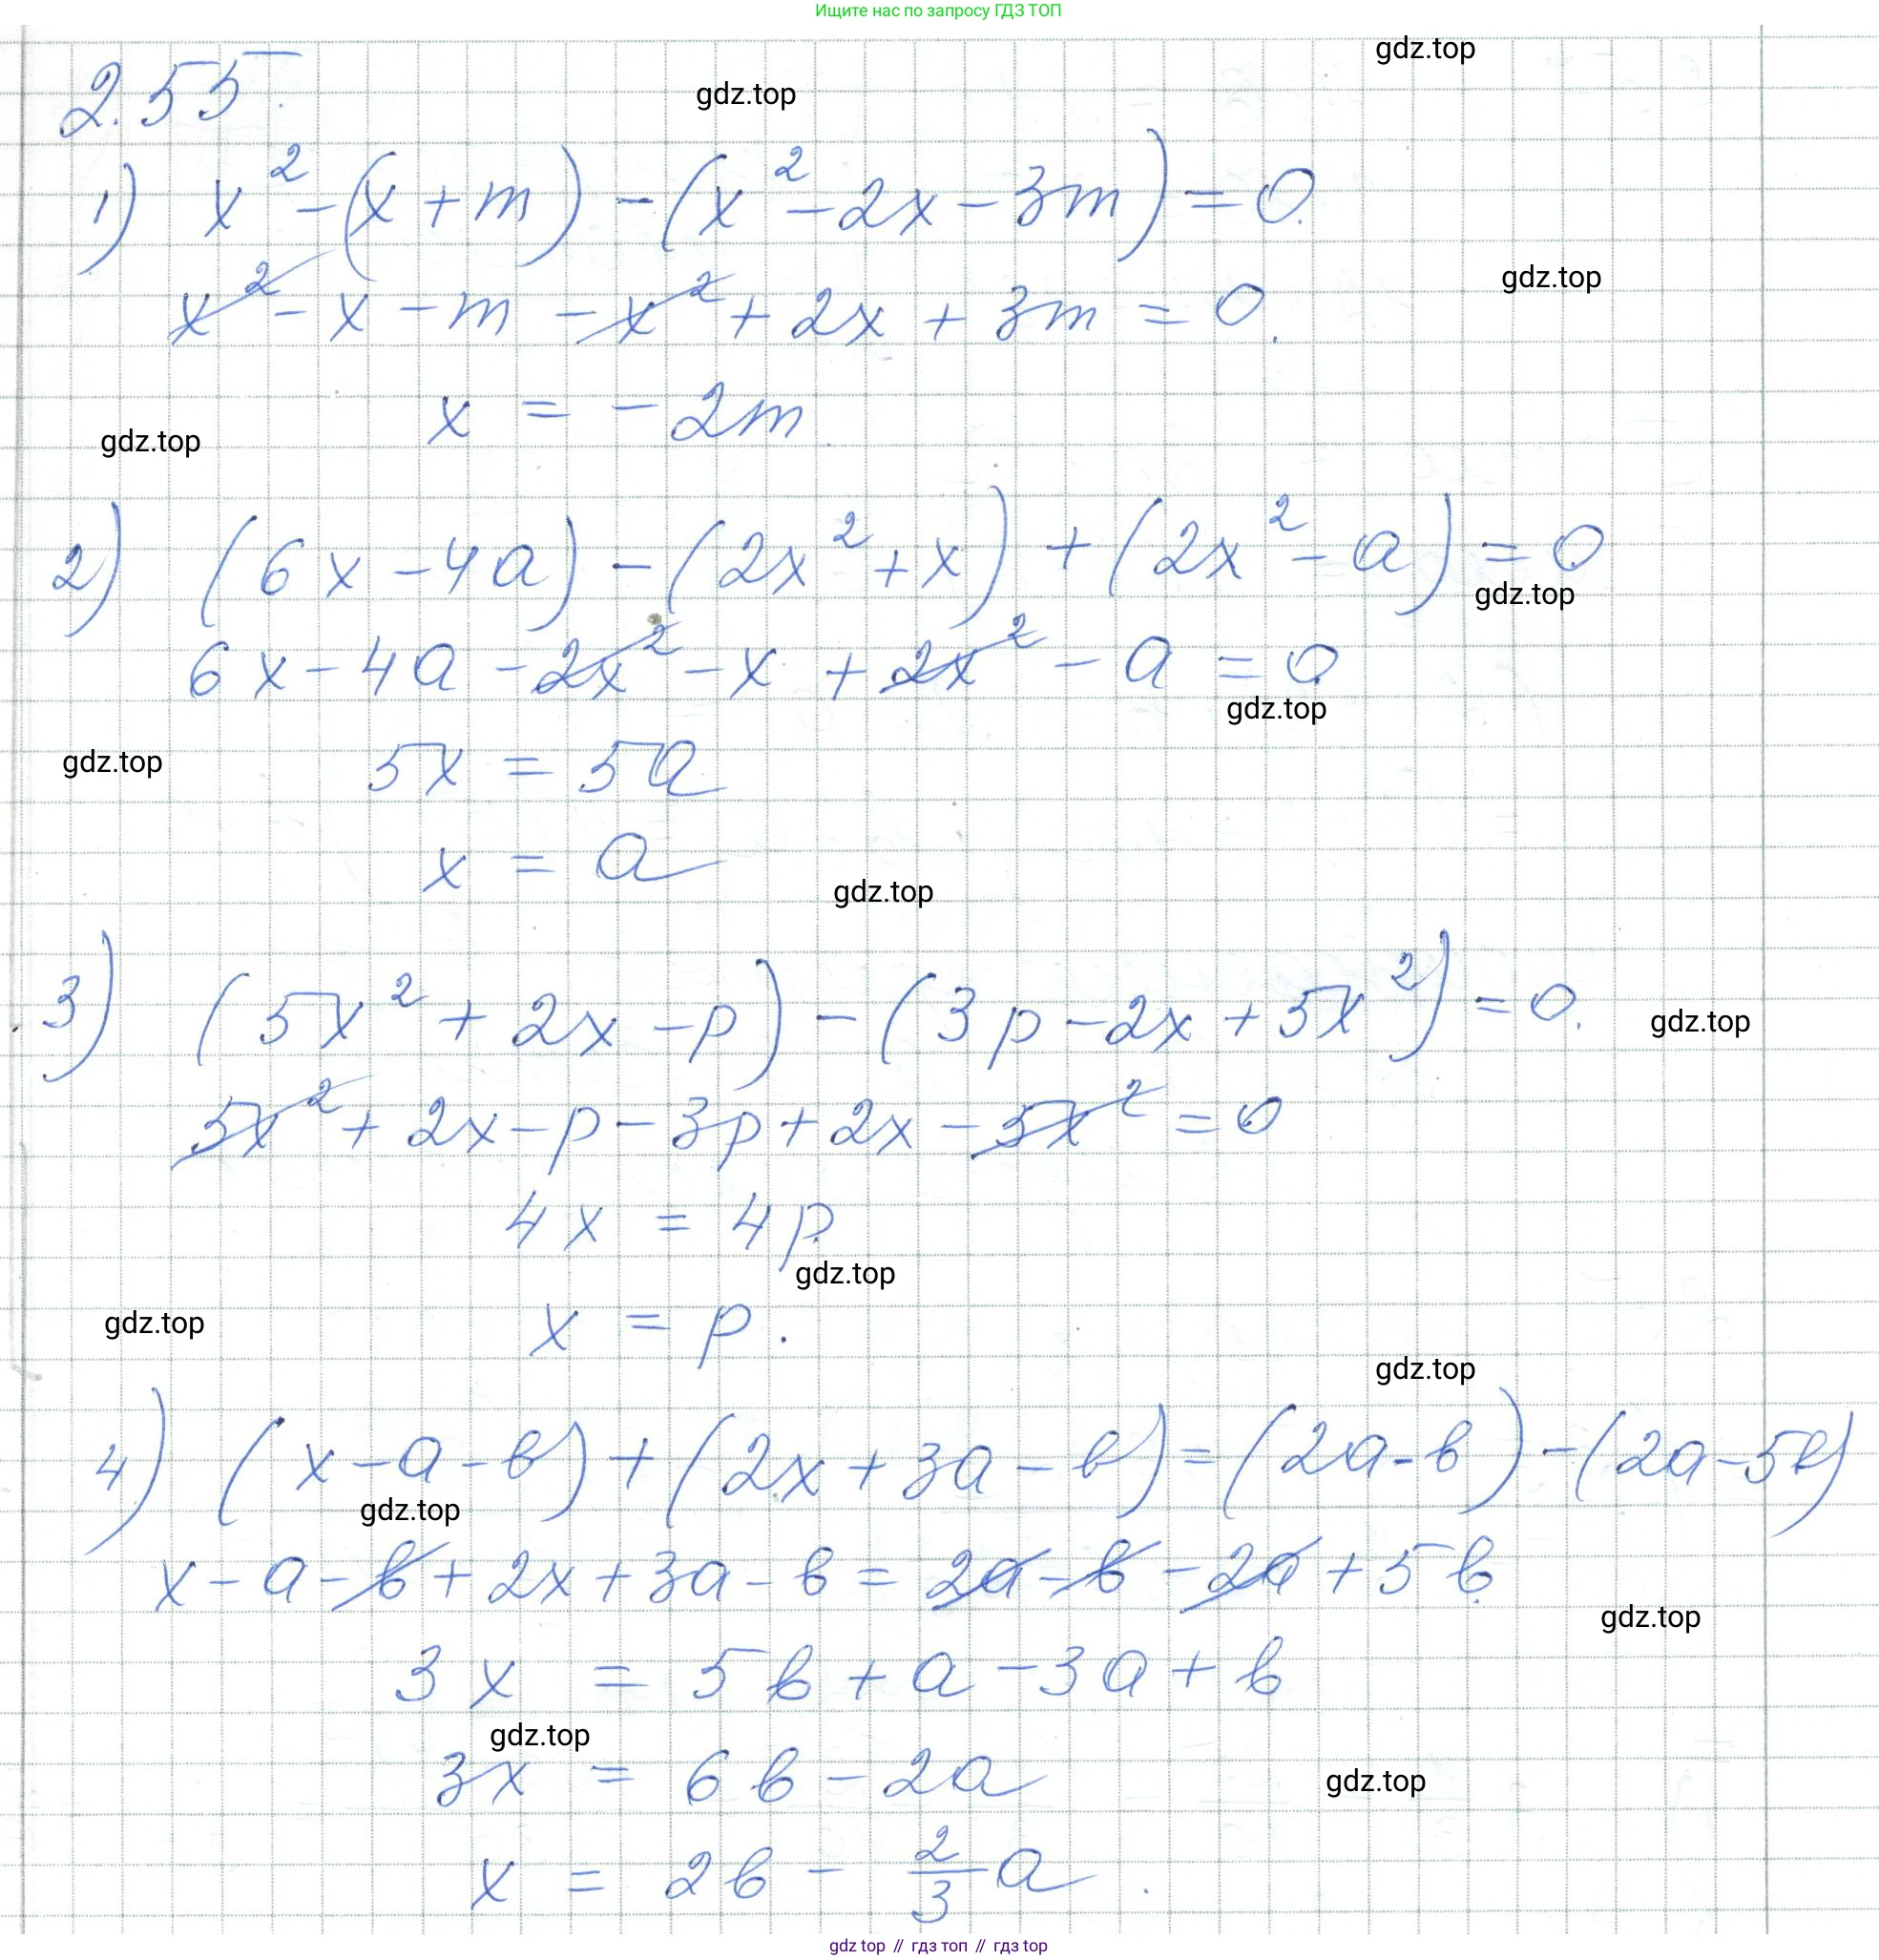 Ищите нас по запросу ГДЗ ТОП
gdz.top
2.55.
gdz.top
1) x² - (x + m) - (x² - 2x - 3m) = 0.
gdz.top
x² - x - m - x² + 2x + 3m = 0.
x = - 2m.
gdz.top
2) (6x - 4a) - (2x² + x) + (2x² - a) = 0
gdz.top
6x - 4a - 2x² - x + 2x² - a = 0
gdz.top
gdz.top
5x = 5a
x = a
gdz.top
3) (5x² + 2x - p) - (3p - 2x + 5x²) = 0.
gdz.top
5x² + 2x - p - 3p + 2x - 5x² = 0
4x = 4p
gdz.top
gdz.top
x = p.
gdz.top
4) (x - a - b) + (2x + 3a - b) = (2a - b) - (2a - 5b)
gdz.top
x - a - b + 2x + 3a - b = 2a - b - 2a + 5b
gdz.top
3x = 5b + a - 3a + b
gdz.top
3x = 6b - 2a
gdz.top
x = 2b - 2/3 a.
gdz top // гдз топ // гдз top